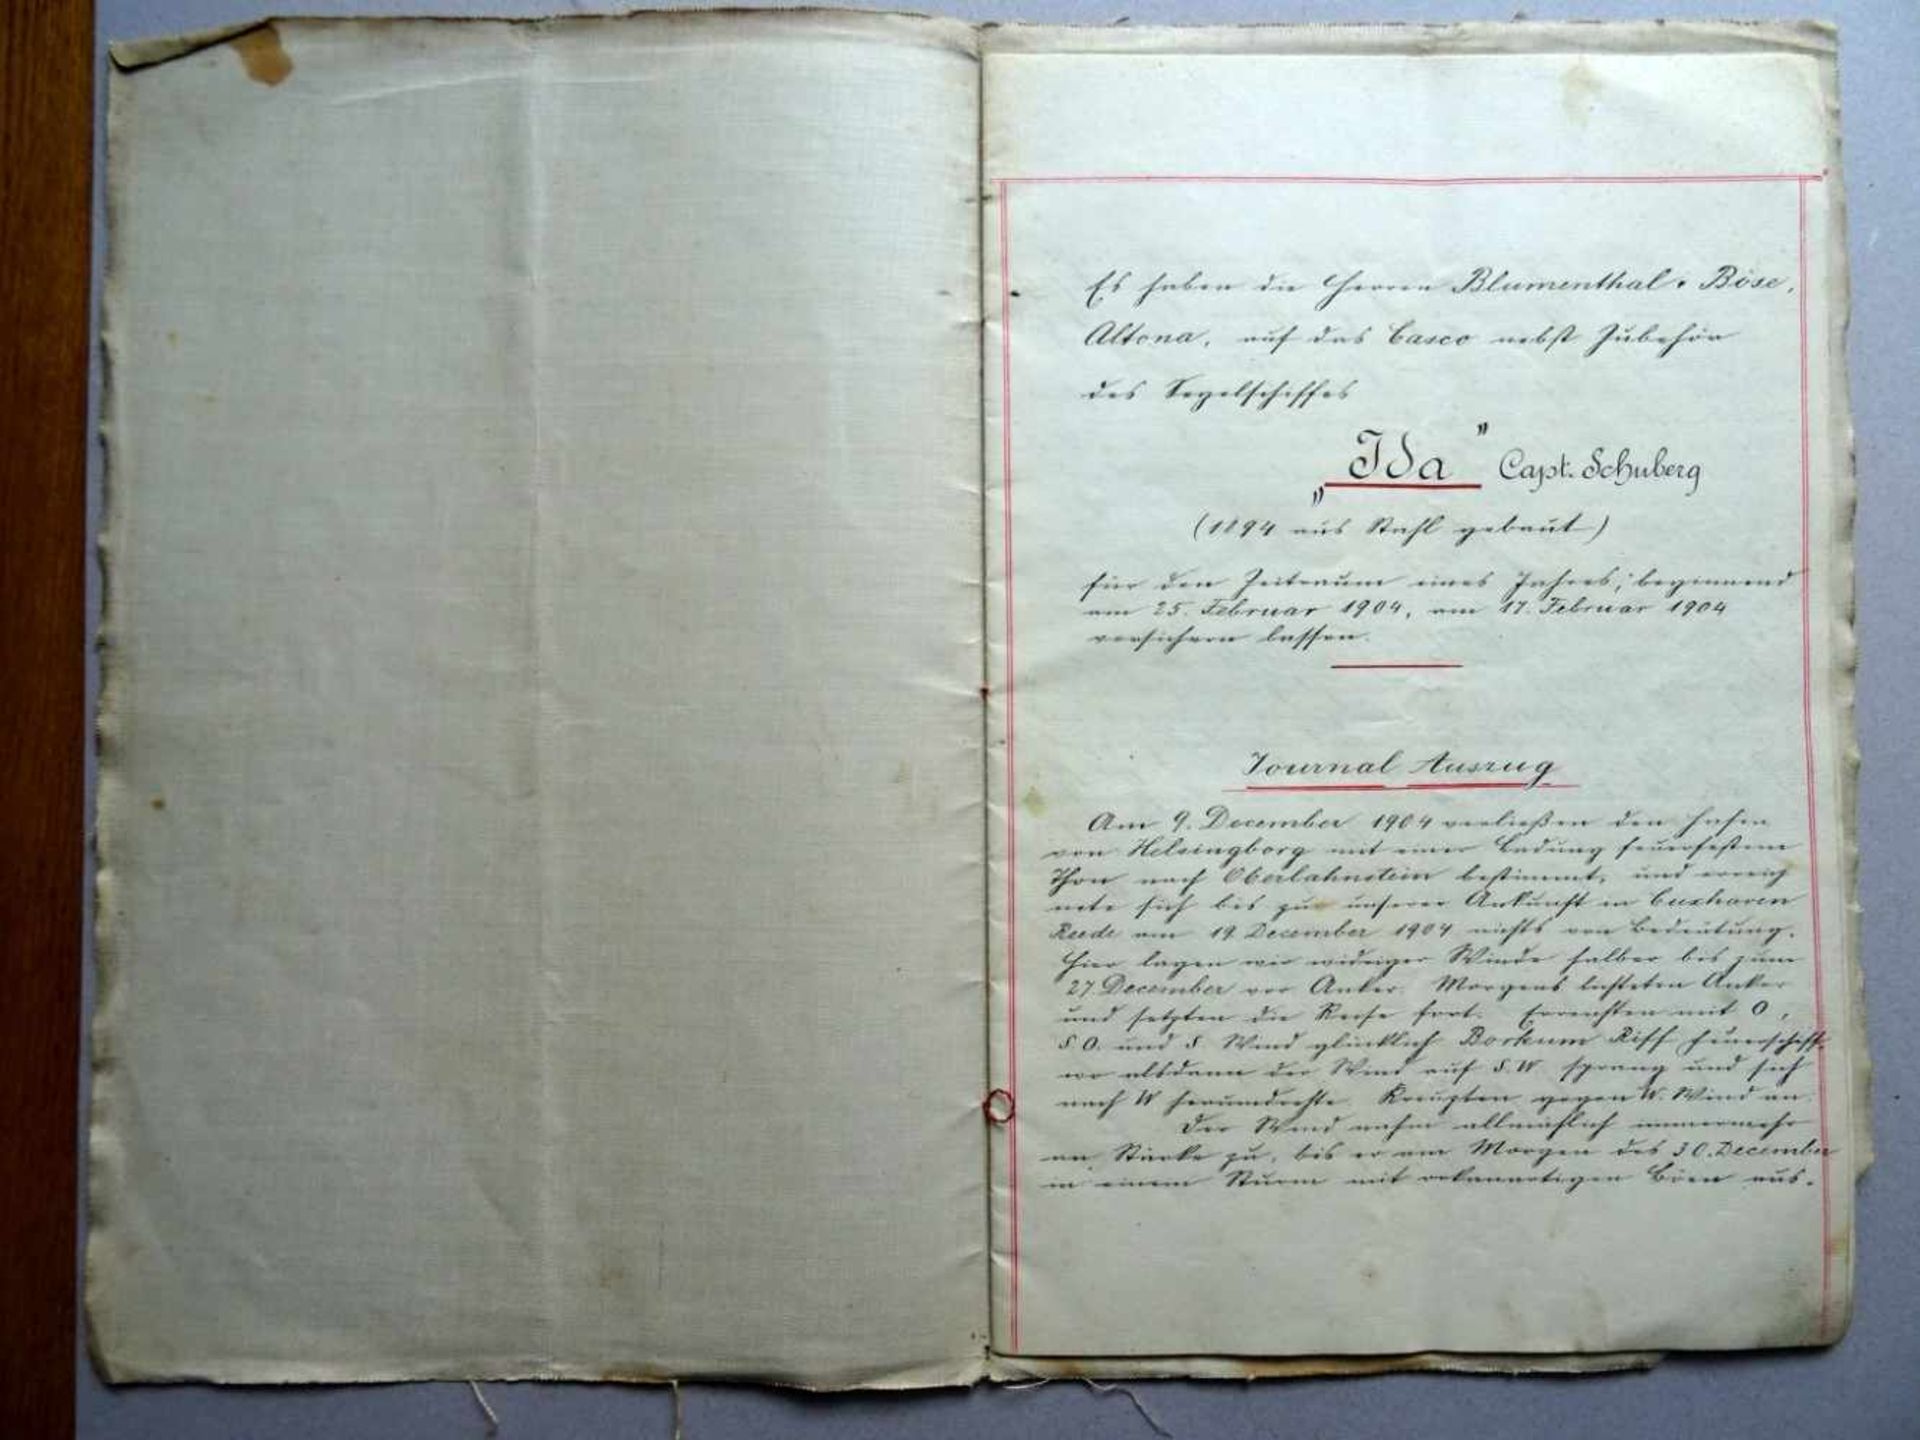 Es haben die Herren Blumenthal & Böse,
Altona, auf das Casco nebst Zubehör
des Segelschiffes
„Ida" Capt. Schuberg
(1894 aus Stahl gebaut)
für den Zeitraum eines Jahres, beginnend
am 25. Februar 1904, am 17. Februar 1904
versichern lassen.
Journal Auszug
Am 9. December 1904 verließen den Hafen
von Helsingborg mit einer Ladung feuerfestem
Thon nach Oberlahnstein bestimmt, und ereig
nete sich bis zu unserer Ankunft in Cuxhaven
Reede am 19. December 1904 nichts von Bedeutung.
Hier lagen wir widriger Winde halber bis zum
27. December vor Anker. Morgens lichteten Anker
und setzten die Reise fort. Erreichten mit O,
S.O. und S. Wind glücklich Borkum Riff Feuerschiff,
wo alsdann der Wind auf S.W. sprang und sich
nach W herumdrehte. Kreuzten gegen W. Wind an.
Der Wind nahm allmählich immermehr
an Stärke zu, bis er am Morgen des 30. December
in einem Sturm mit orkanartigen Böen aus-